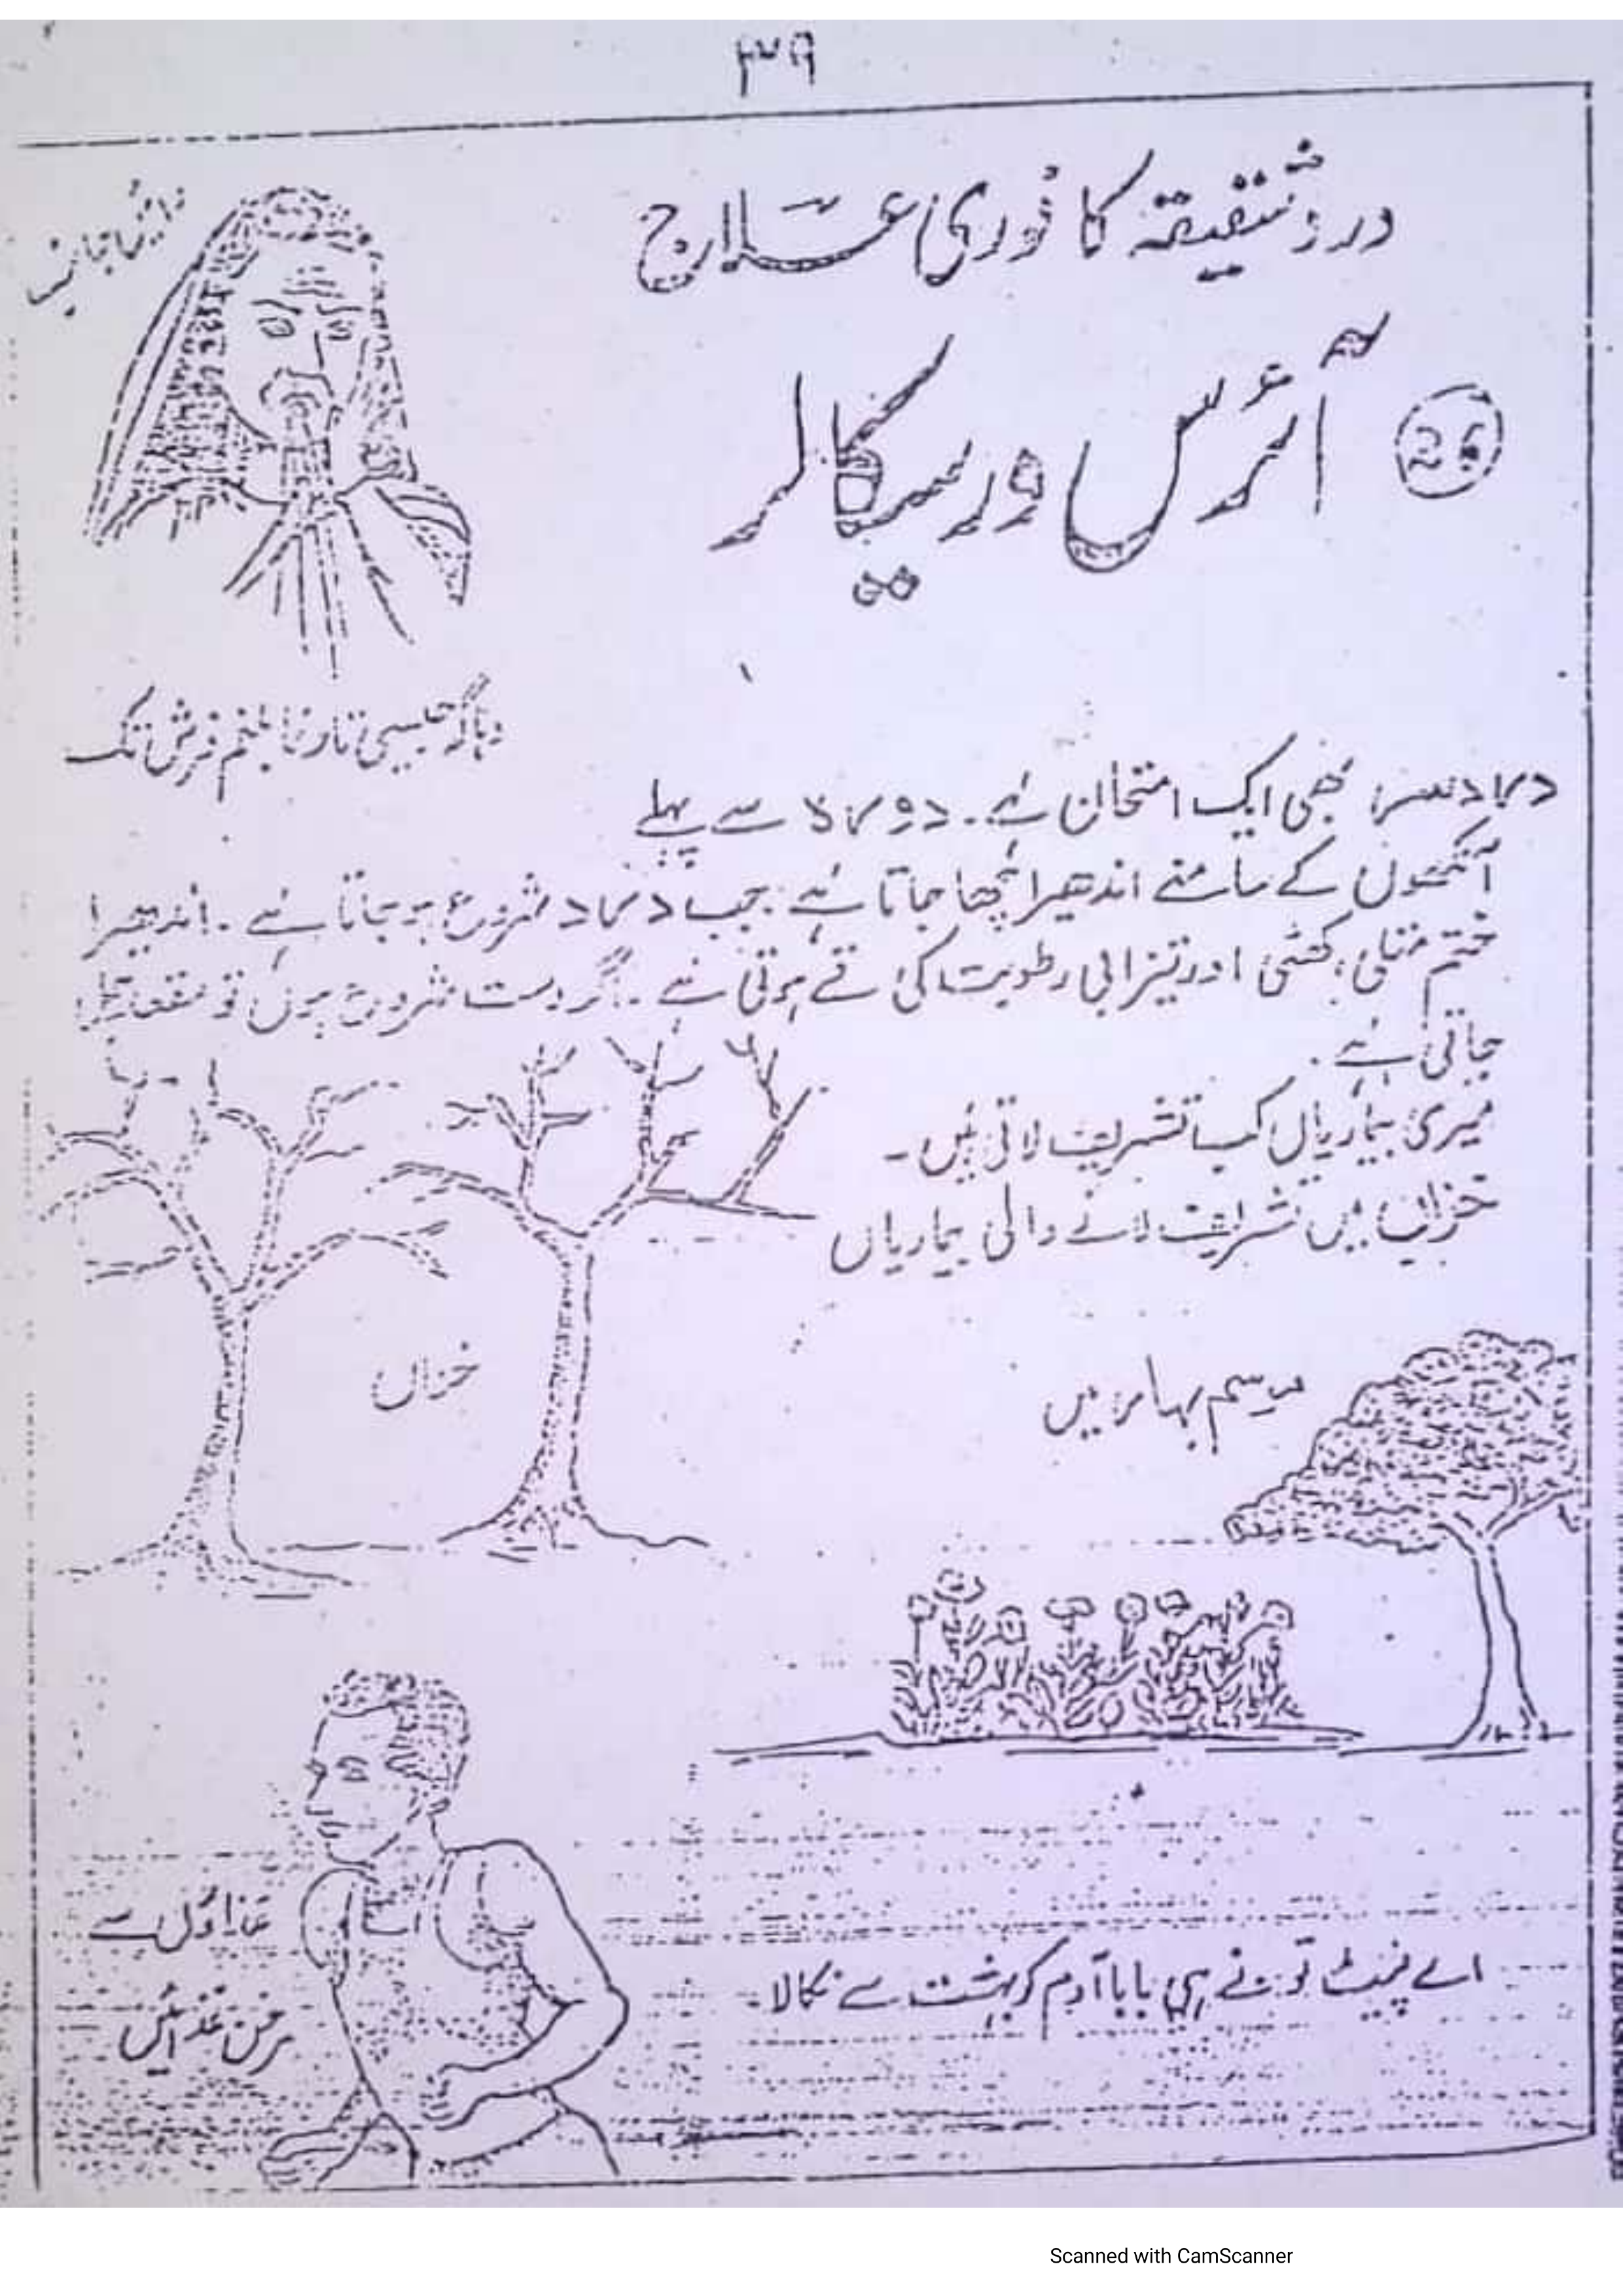 ٣٩
درد شقیقہ کا فوری علاج
آئرس ورسیکالر
دھاگہ جیسی تار نما بلغم فرش تک
درد سر بھی ایک امتحان ہے۔ دورہ سے پہلے
آنکھوں کے سامنے اندھیرا چھا جاتا ہے جب درد شروع ہو جاتا ہے۔ اندھیرا
ختم متلی، کھٹی اور تیزابی رطوبت کی قے ہوتی ہے۔ اگر دست شروع ہوں تو
جاتی ہے۔
میری بیماریاں کب تشریف لاتی ہیں۔
خزاں میں تشریف لانے والی بیماریاں
خزاں
موسم بہار میں
غذاؤں سے
مرغن غذائیں
اے پیٹ تو نے ہی بابا آدم کو بہشت سے نکالا۔
Scanned with CamScanner